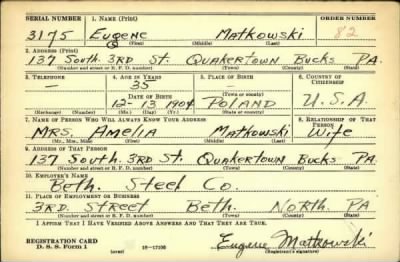 SERIAL NUMBER 1. NAME (Print) ORDER NUMBER
3175 Eugene Matkowski 82
(First) (Middle) (Last)
2. ADDRESS (Print)
137 South 3RD St. Quakertown Bucks PA.
(Number and street or R. F. D. number) (Town) (County) (State)
3. TELEPHONE 4. AGE IN YEARS 5. PLACE OF BIRTH 6. COUNTRY OF CITIZENSHIP
— 35 —
DATE OF BIRTH (Town or county)
12-13-1904 POLAND U.S.A
(Exchange) (Number) (Mo.) (Day) (Yr.) (State or country)
7. NAME OF PERSON WHO WILL ALWAYS KNOW YOUR ADDRESS 8. RELATIONSHIP OF THAT PERSON
MRS. Amelia Matkowski Wife
(Mr., Mrs., Miss) (First) (Middle) (Last)
9. ADDRESS OF THAT PERSON
137 South 3RD St. Quakertown Bucks PA
(Number and street or R. F. D. number) (Town) (County) (State)
10. EMPLOYER'S NAME
Beth. Steel Co.
11. PLACE OF EMPLOYMENT OR BUSINESS
3RD. STREET Beth. North. PA
(Number and street or R. F. D. number) (Town) (County) (State)
I AFFIRM THAT I HAVE VERIFIED ABOVE ANSWERS AND THAT THEY ARE TRUE.
REGISTRATION CARD
D. S. S. Form 1 (over) 16—17105 Eugene Matkowski
(Registrant's signature)